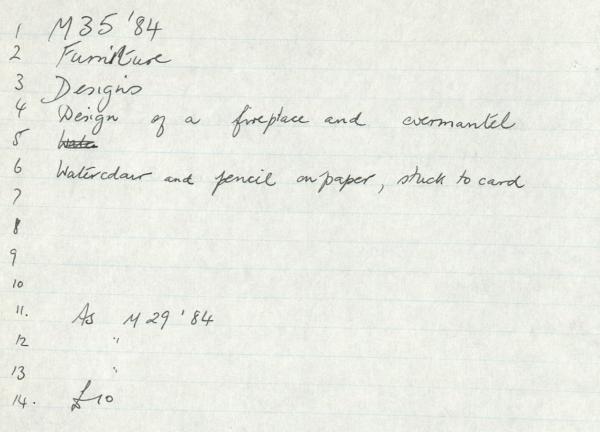 1 M35 '84
2 Furniture
3 Designs
4 Design of a fireplace and overmantel
5 Water
6 Watercolour and pencil on paper, stuck to card
7
8
9
10
11. As M29 '84
12 "
13 "
14. £10